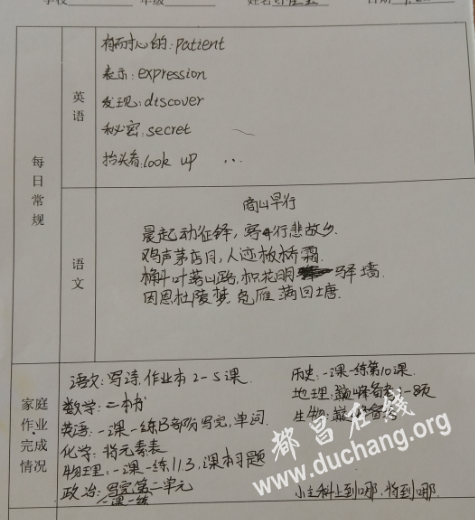 年级
姓名
日期
每日常规
英语
有耐心的: patient
表示: expression
发现: discover
秘密: secret
抬头看: look up ...
语文
商山早行
晨起动征铎,客行悲故乡.
鸡声茅店月,人迹板桥霜.
槲叶落山路,枳花明驿墙.
因思杜陵梦,凫雁满回塘.
家庭作业完成情况
语文: 写诗.作业本2-5课
数学: 二本书
英语: 一课一练B部分写完,单词
化学: 抄元素表
物理: 一课一练1 1 3.课本习题
政治: 写完第二单元
一课一练
历史: 一课一练第10课
地理: 巅峰备考
生物: 巅峰备考
小主科上到哪,
都昌在线
www.duchang.org